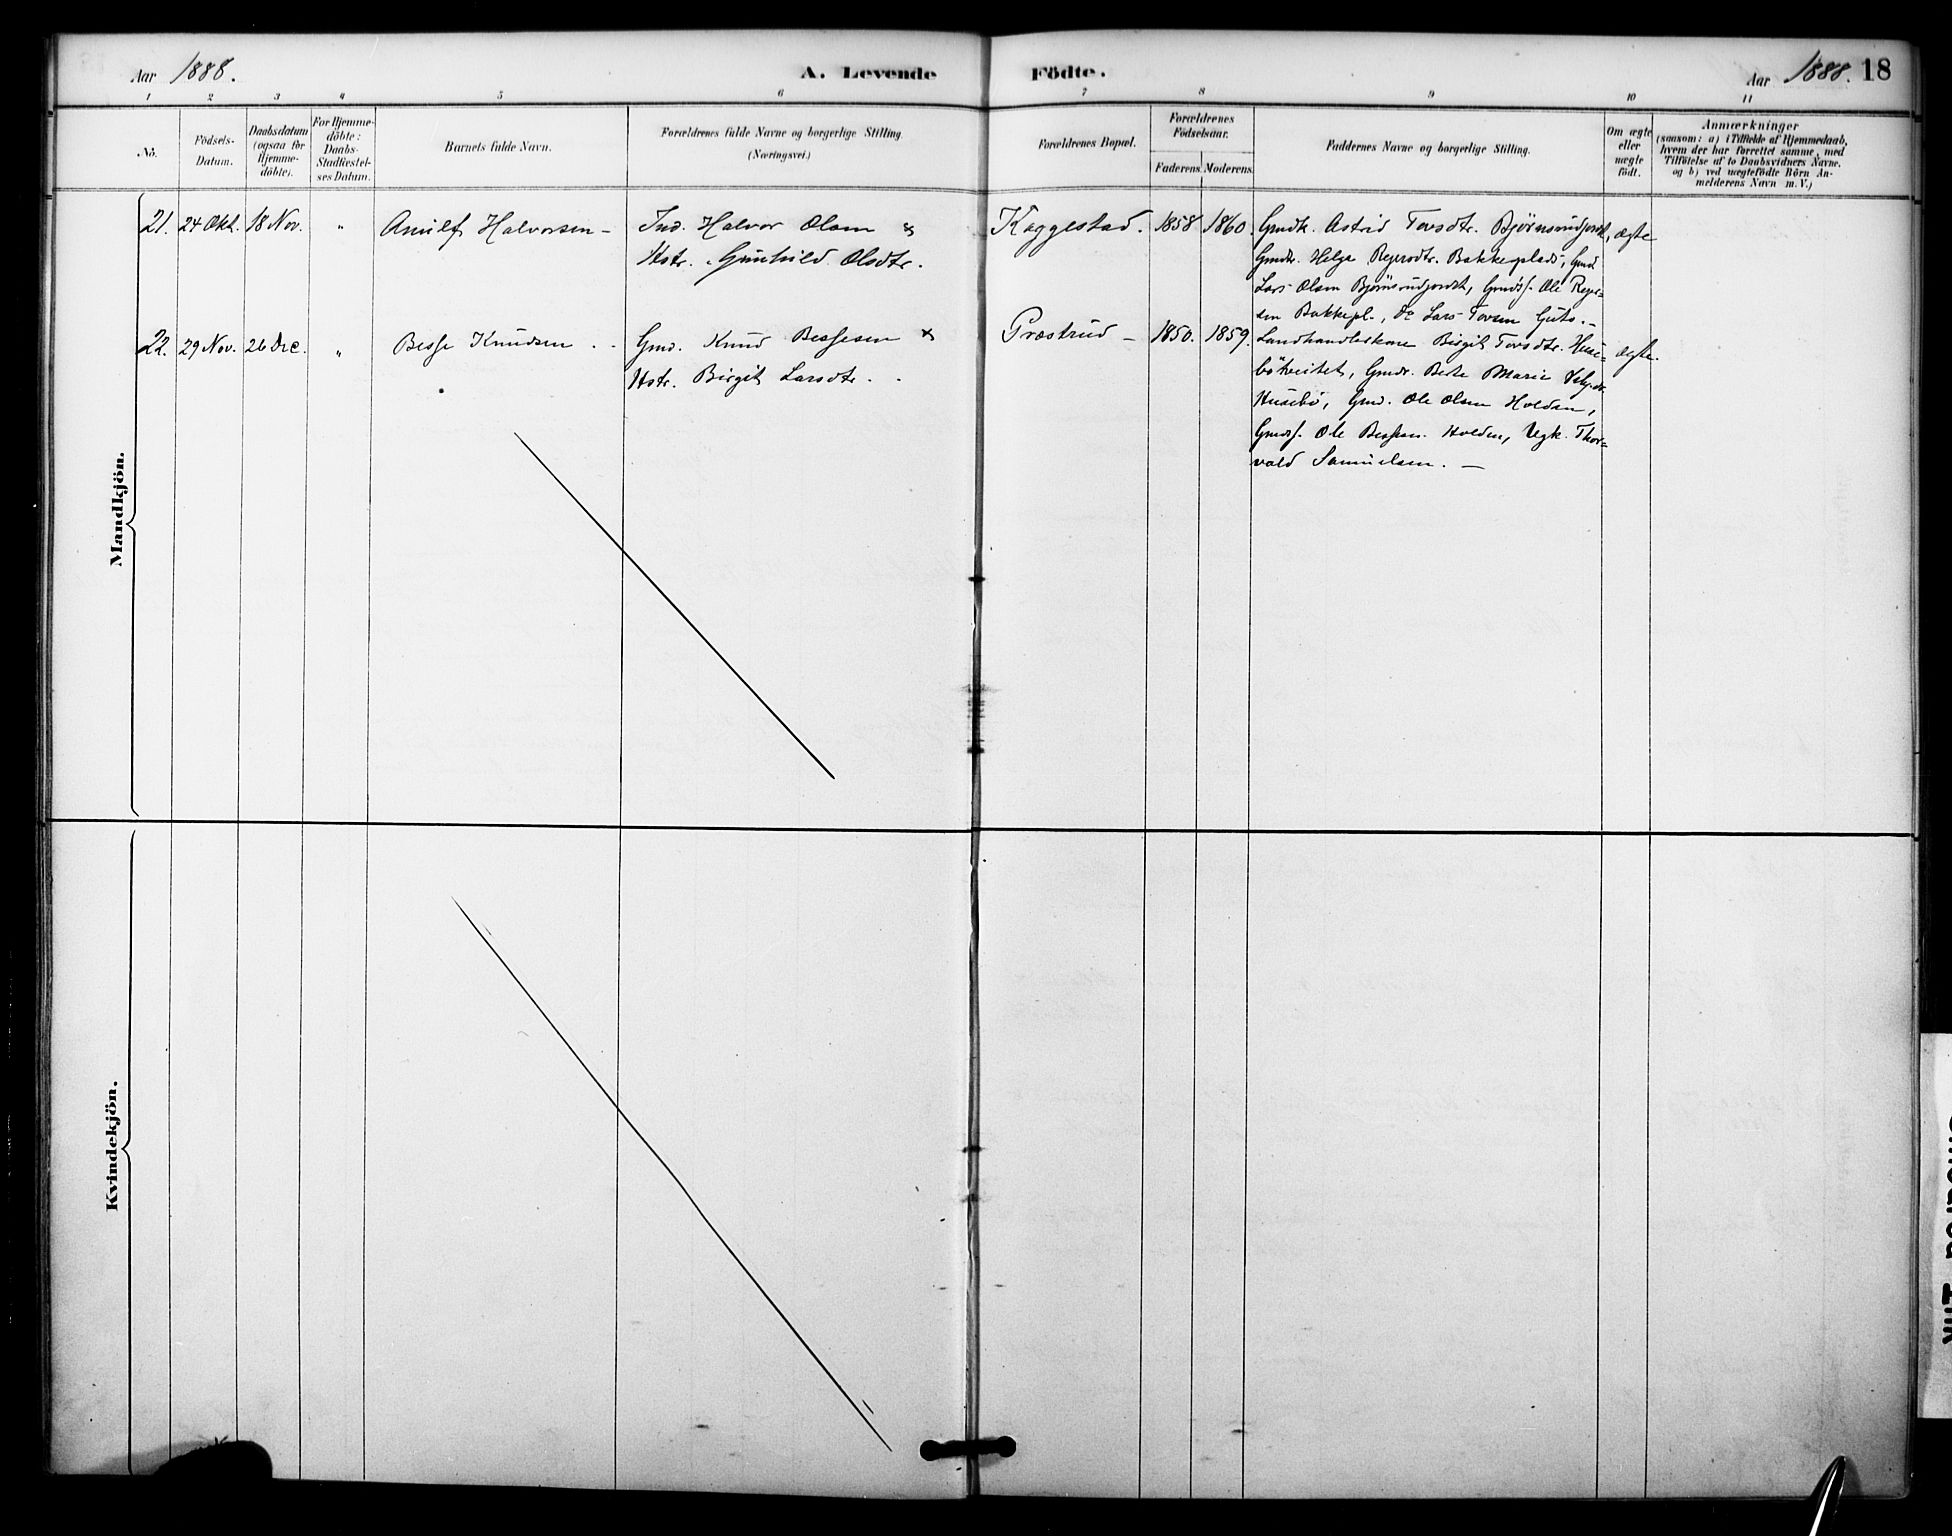 Aar 1888.
A. Levende Födte.
Aar 1888. 18
1 2 3 4 5 6 7 8 9 10 11
No.
Födsels-
Datum.
Daabsdatum
(ogsaa for
Hjemme-
döbte).
For Hjemme-
döbte:
Daabs-
Stadfæstel-
ses Datum.
Barnets fulde Navn.
Forældrenes fulde Navne og borgerlige Stilling.
(Næringsvei.)
Forældrenes Bopæl.
Forældrenes
Födselsaar.
Faderens. Moderens.
Faddernes Navne og borgerlige Stilling.
Om ægte
eller
uægte
födt.
Anmærkninger
(saasom: a) i Tilfælde af Hjemmedaab,
hvem der har forrettet samme, med
Tilföielse af to Daabsvidners Navne.
og b) ved uægtefödte Börn An-
melderens Navn m. V.)
Mandkjön.
21. 24 Okt. 18 Nov. " Halvorsen –
Ind. Halvor Olsen &
Hstr. Gunhild Olsdtr.
Kaggestad. 1858 1860
Gmdk. Astrid Torsdtr. Bjørnsrudjordet,
Gmdtr. Helga Bakkeplads, Gmd
Lars Olsen Bjørnsrudjordet, Gmdsf. Ole
sen Bakkepl., do Lars Torsen
ægte
22. 29 Nov. 26 Dec. " Besse Knudsen
Gmd. Knud Bessesen &
Hstr. Birgit Larsdtr.
Præstrud – 1850. 1859.
Landhandlerkone Birgit Torsdtr. Huse-
Gmdr. Berte Marie
Husebö, Gmd. Ole Olsen Holden,
Gmdsf. Ole Bessesen Holden, Ugk. Thor-
vald Samuelsen. –
ægte.
Kvindekjön.